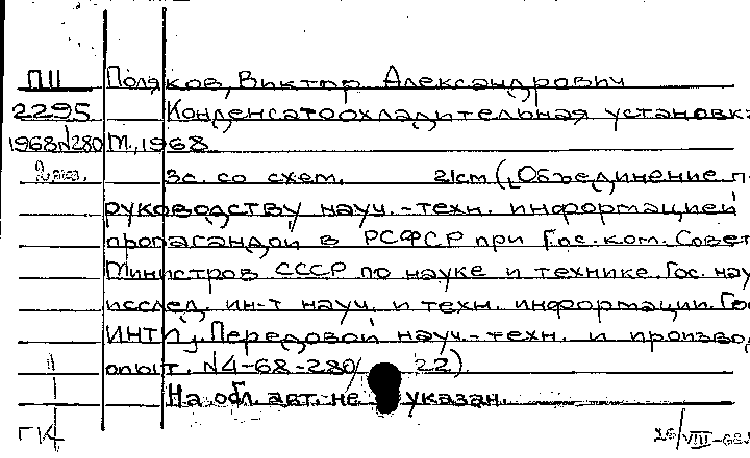 ПП Поляков, Виктор Александрович
2295 Конденсатоохладительная установка
1968/280 М., 1968
3с. со схем. 21см (Объединение п
руководству науч.-техн. информацией
пропагандой в РСФСР при Гос. ком. Совет
Министров СССР по науке и технике. Гос. нау
исслед. ин-т науч. и техн. информации. Го
ИНТИ). Передовой науч.-техн. и производ
опыт. N4-68-280/22)
На обл. авт. не указан.
ГК 26/VIII-68